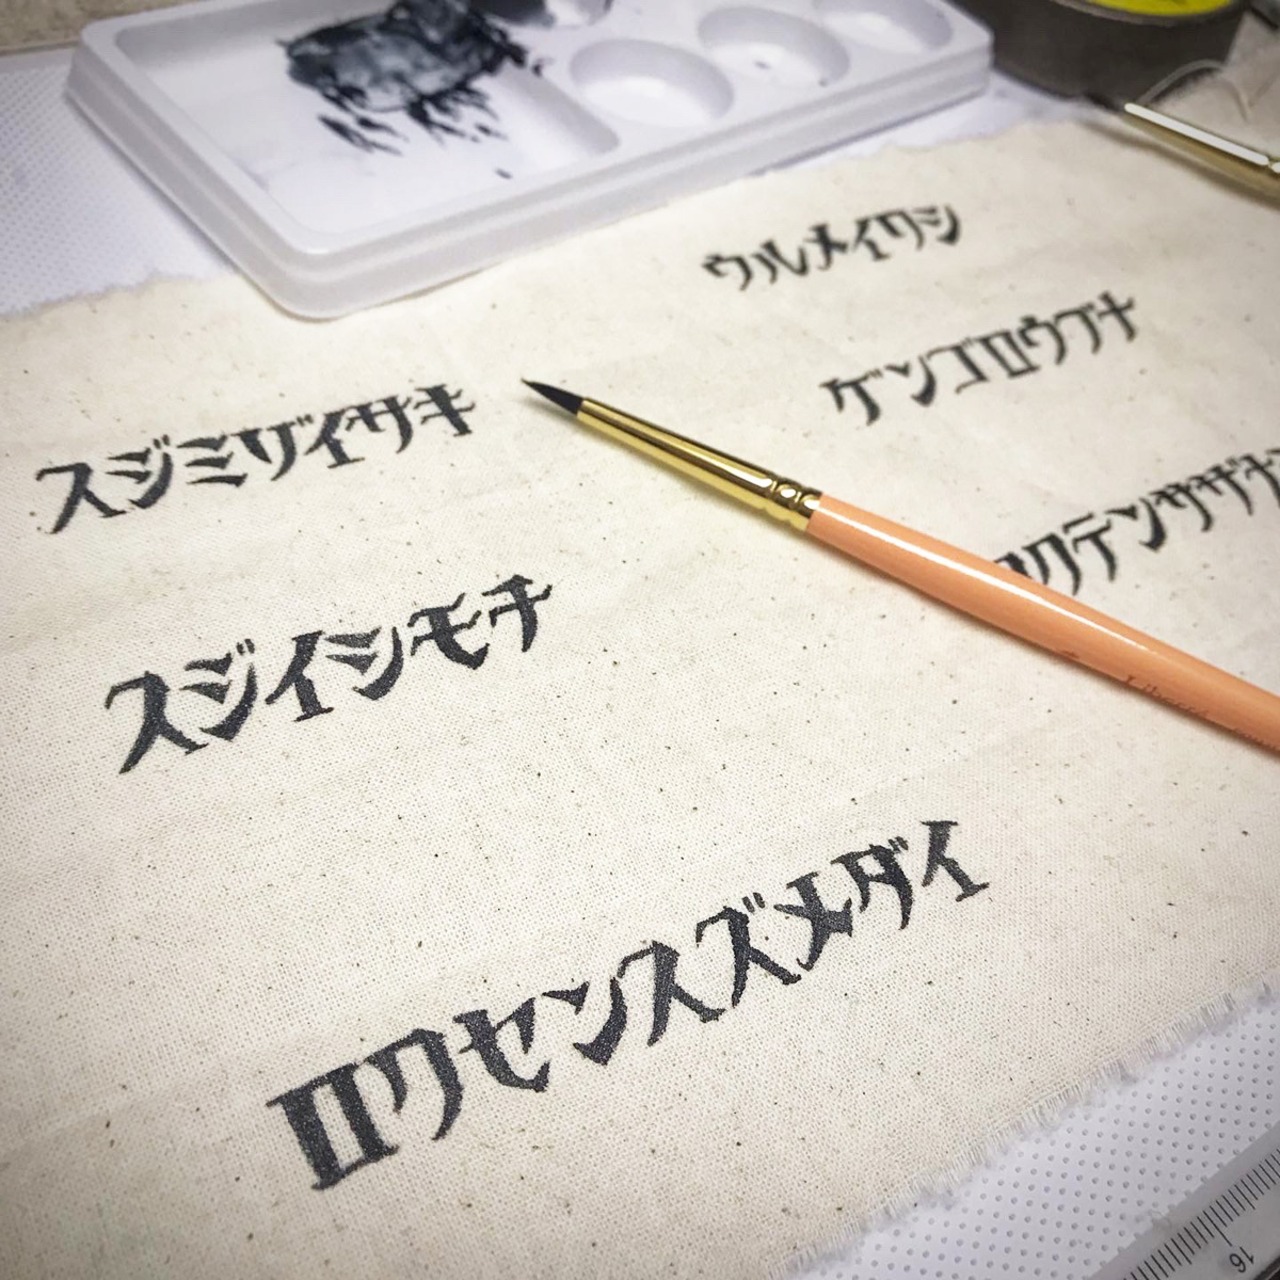 ウルメイワシ
ゲンゴロウブナ
スジミゾイサキ
クテンサザナ
スジイシモチ
ロクセンスズメダイ
16